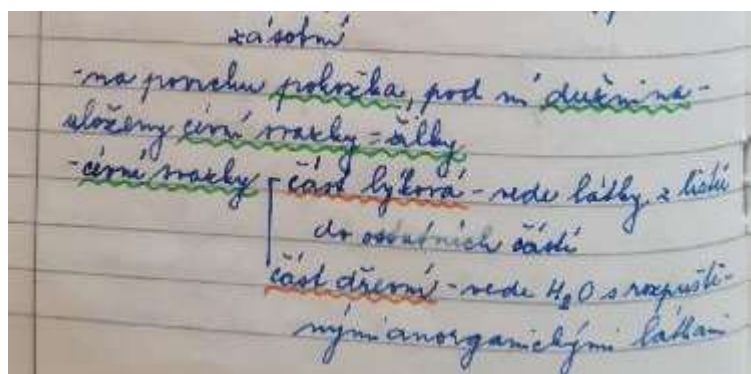 zásobní
-na povrchu pokožka, pod ní dužnina-
uloženy cévní svazky = žilky
-cévní svazky - část lýková - vede látky z listů
do ostatních částí
část dřevní - vede H₂O s rozpuště-
nými anorganickými látkami